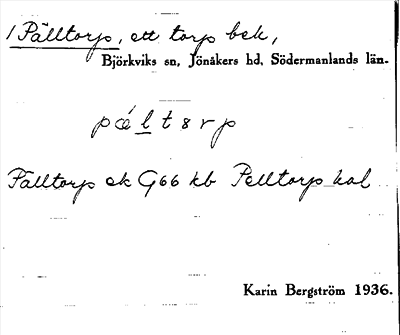 / Pälltorp, ett torp bek,
Björkviks sn, Jönåkers hd, Södermanlands län.
pæ´ltɜrp
Pälltorp ek G66 kb Pelltorp kal
Karin Bergström 1936.